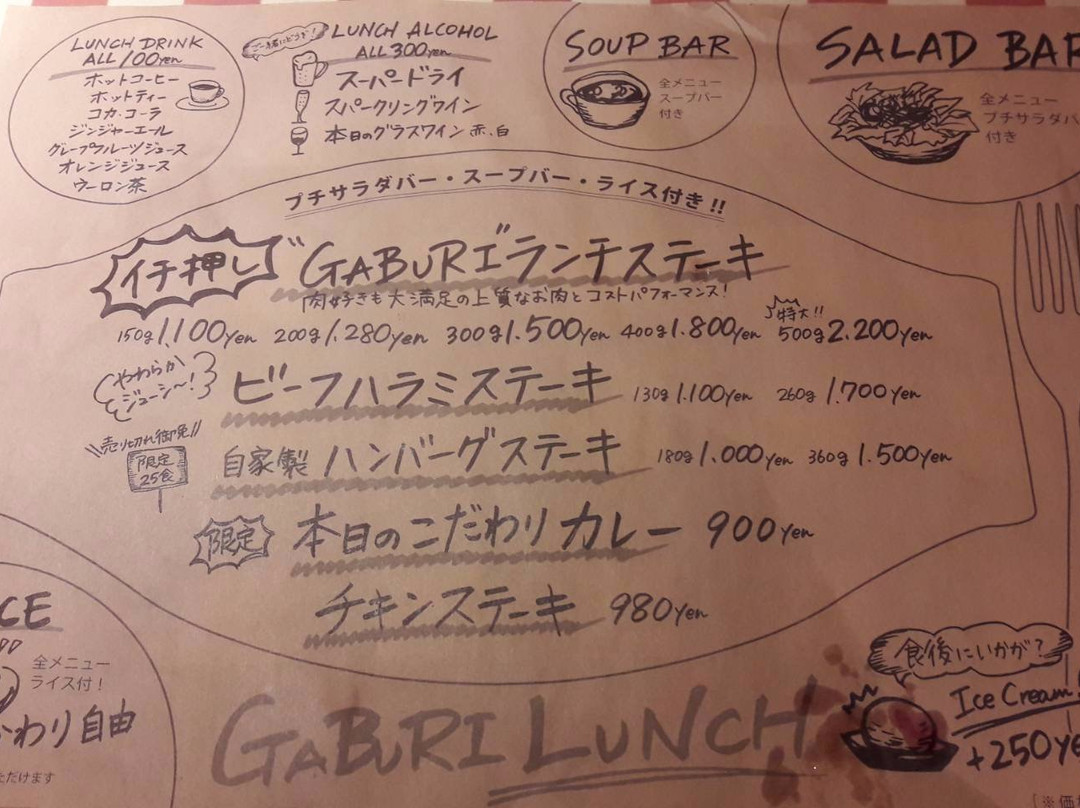 LUNCH DRINK
ALL 100yen
ホットコーヒー
ホットティー
コカ・コーラ
ジンジャーエール
グレープフルーツジュース
オレンジジュース
ウーロン茶
ご一緒にどうぞ!
LUNCH ALCOHOL
ALL 300yen
スーパードライ
スパークリングワイン
本日のグラスワイン 赤、白
SOUP BAR
全メニュー
スープバー
付き
SALAD BAR
全メニュー
プチサラダバ
付き
プチサラダバー・スープバー・ライス付き!!
イチ押し
GABURI ランチステーキ
肉好きも大満足の上質なお肉とコストパフォーマンス!
特大!!
150g 1.100yen 200g 1.280yen 300g 1.500yen 400g 1.800yen 500g 2.200yen
やわらか
ジューシ〜!
ビーフハラミステーキ 130g 1.100yen 260g 1.700yen
売り切れ御免!!
限定
25食
自家製 ハンバーグステーキ 180g 1.000yen 360g 1.500yen
限定
本日のこだわりカレー 900yen
チキンステーキ 980yen
CE
全メニュー
ライス付!
かわり自由
ただけます
GABURI LUNCH
食後にいかが?
Ice Cream!
+250ye
(※価